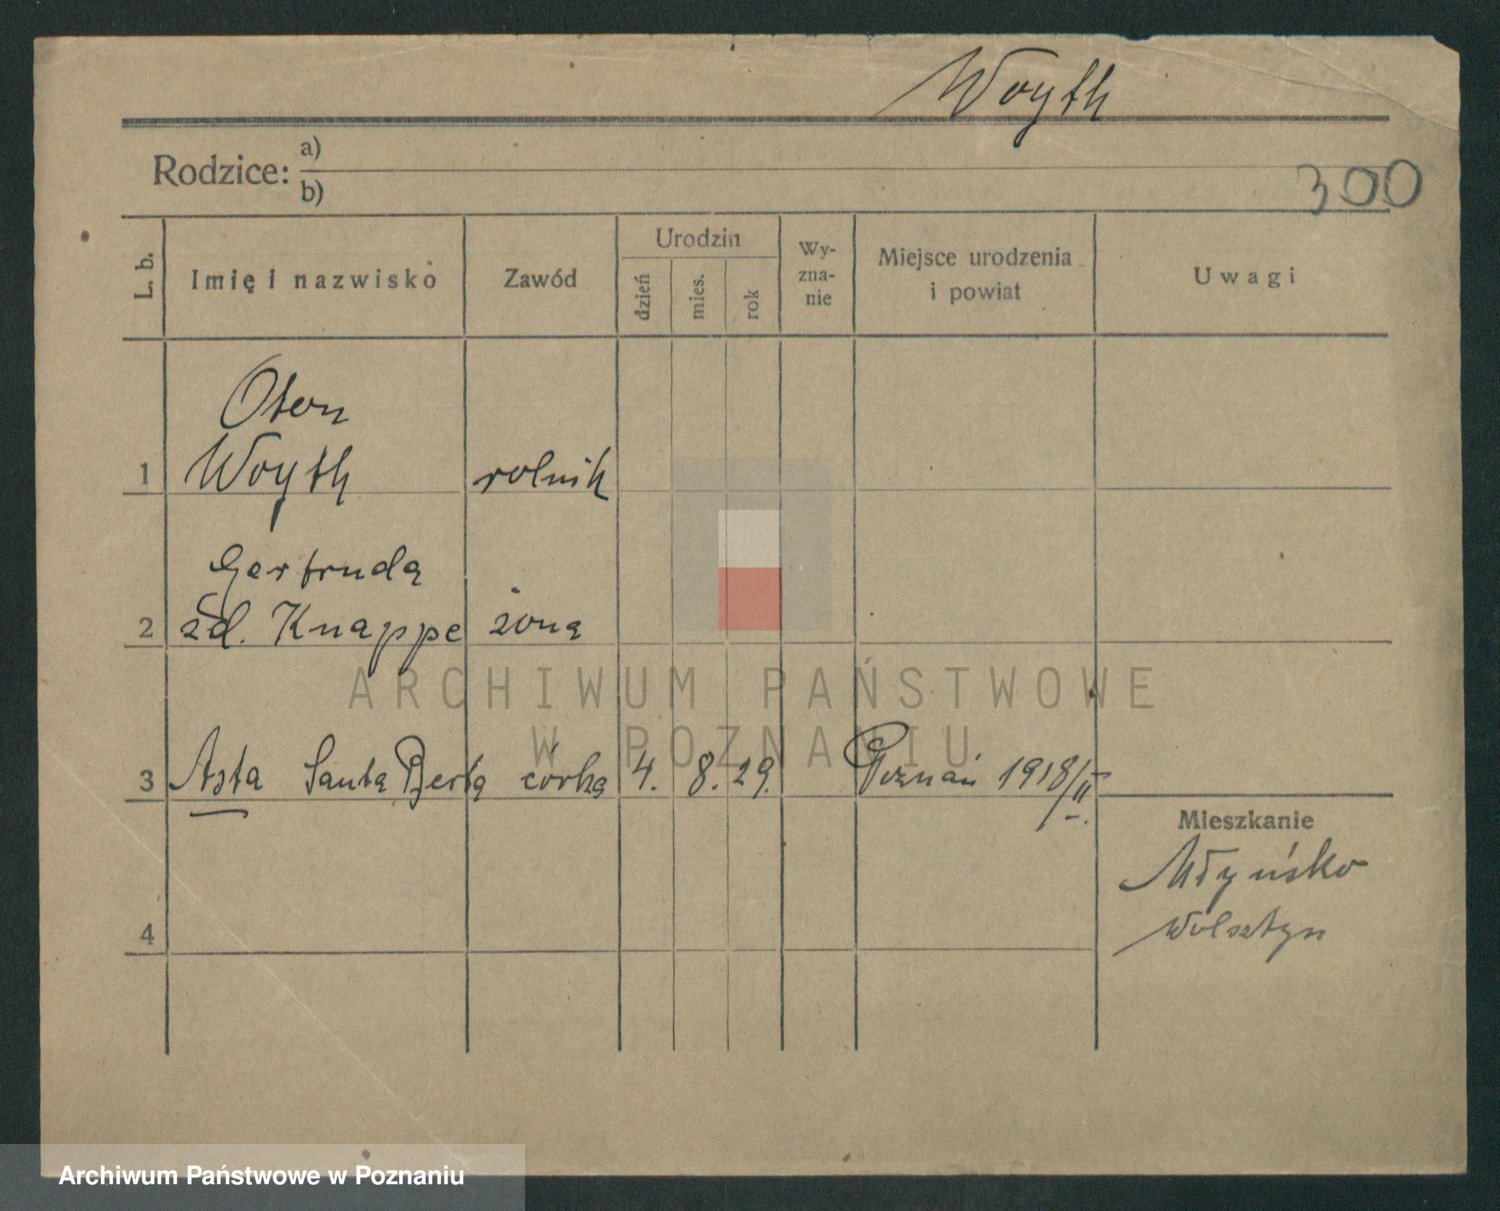 Woyth
Rodzice: a)
b)
300
L. b.
Imię i nazwisko
Zawód
Urodzin
dzień
mies.
rok
Wy-
zna-
nie
Miejsce urodzenia
i powiat
Uwagi
Oton
1 Woyth rolnik
Gertruda
2 zd. Knappe żona
3 Asta Santa Berta córka 4. 8. 29. Poznań 1918/II.
Mieszkanie
Młyńsko
Wolsztyn
4
ARCHIWUM PAŃSTWOWE
W POZNANIU
Archiwum Państwowe w Poznaniu